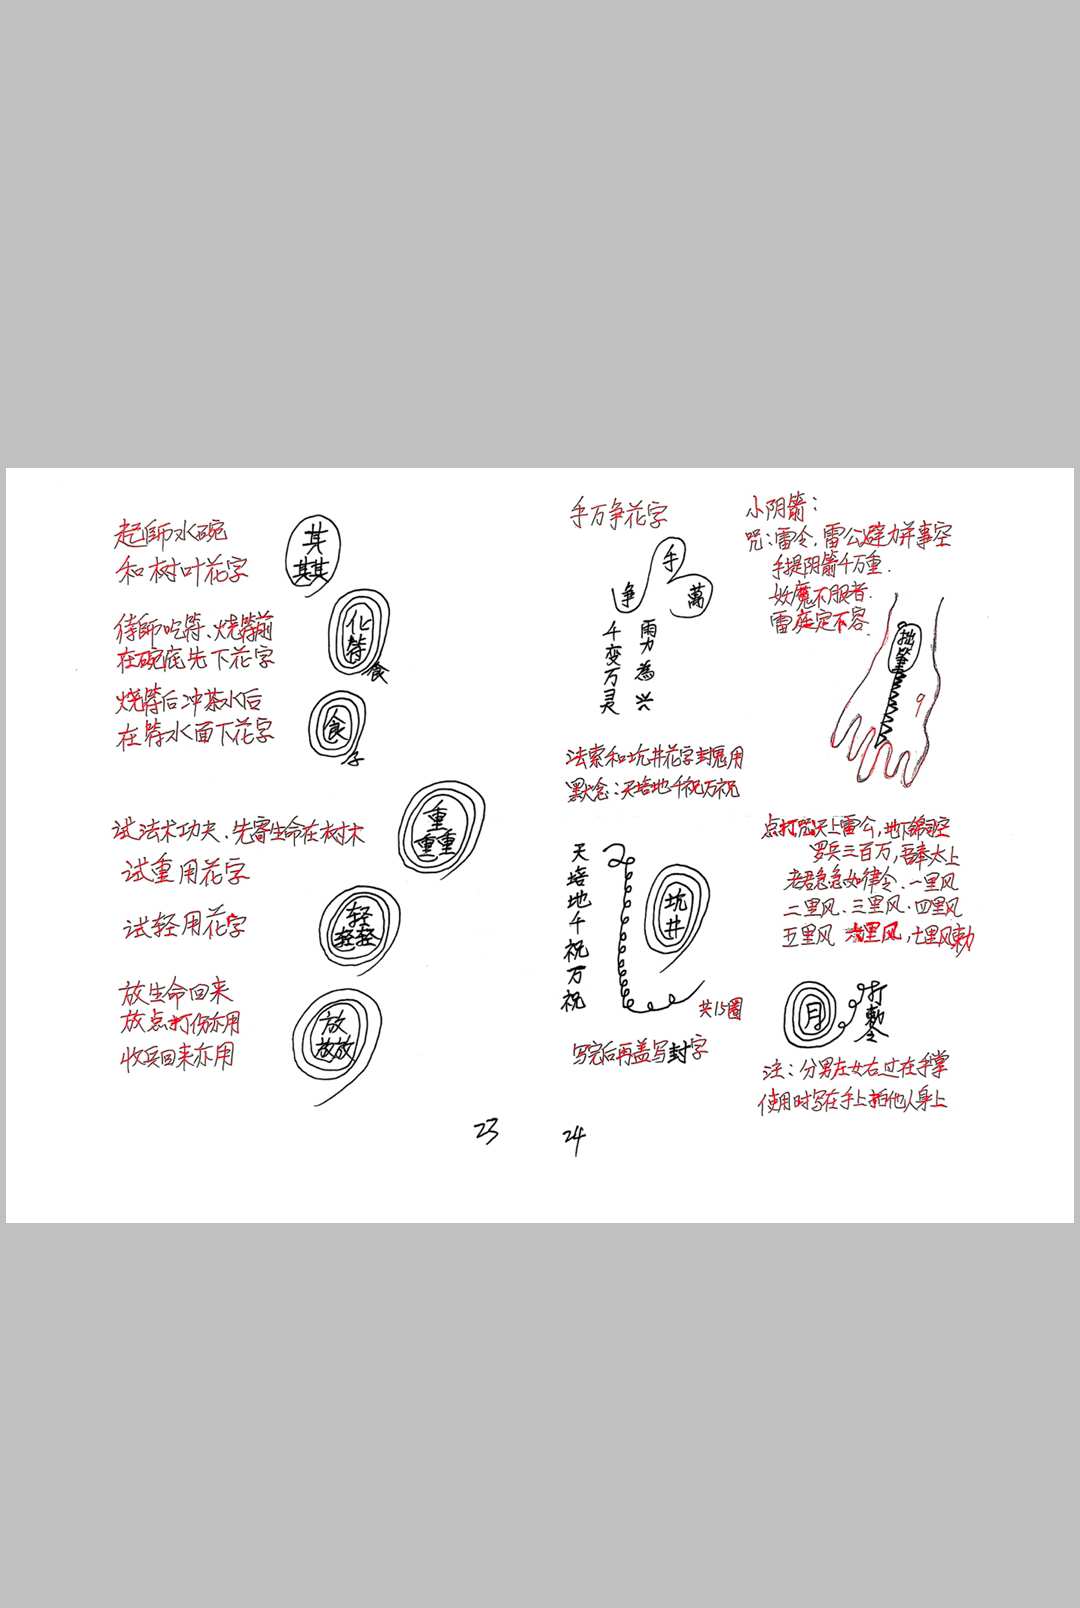 起師水碗
和树叶花字
其
其其
待師吃符、烧符前
在碗底先下花字
化
符
食
烧符后冲茶水后
在符水面下花字
食
子
试法术功夫、先寄生命在树木
试重用花字
重
重重
试轻用花字
轻
轻轻
放生命回来
放点打伤亦用
收兵回来亦用
放
放放
23
手万争花字
手
争
萬
千变万灵
為兴
法索和坑井花字封鬼用
默念：天培地千祝万祝
天培地千祝万祝
坑
井
共15圈
写完后再盖写封字
24
小阴箭：
咒：雷令，雷公避力并事空
手提阴箭千万重．
妖魔不服者．
雷庭定不容．
9
点打咒天上雷公，地下
罗兵三百万，吾奉太上
老君急急如律令．一里风
二里风．三里风．四里风
五里风 六里风，七里风勅
月
打勅令
注：分男左女右过在手掌
使用时写在手上拍他人身上